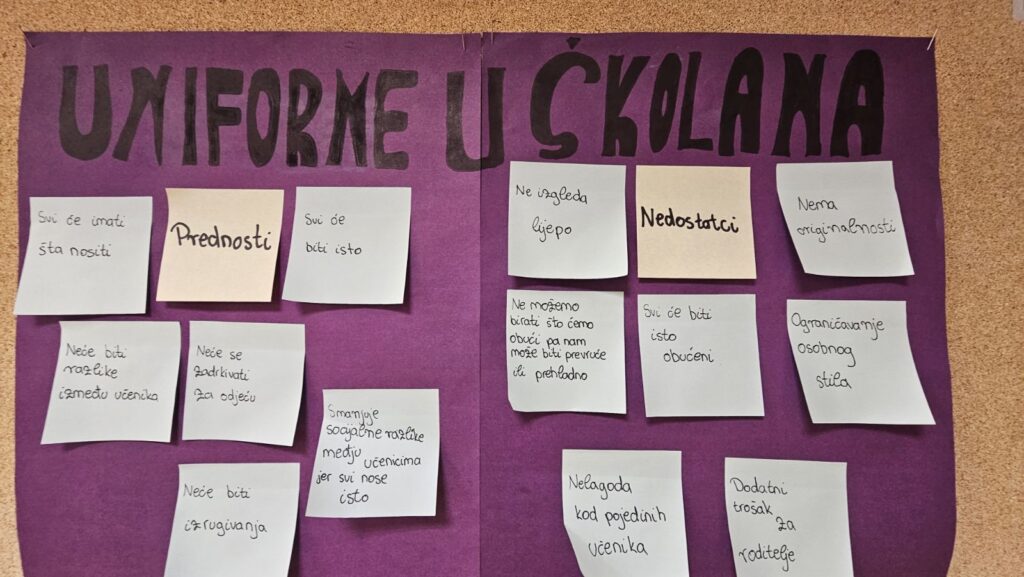 UNIFORME U ŠKOLAMA
Svi će imati
šta nositi
Prednosti
Svi će
biti isto
Neće biti
razlike
između učenika
Neće se
zadrkivati
za odjeću
Smanjuje
socijalne razlike
medju učenicima
jer svi nose
isto
Neće biti
izrugivanja
Ne izgleda
lijepo
Nedostatci
Nema
originalnosti
Ne možemo
birati što ćemo
obući pa nam
može biti prevruće
ili prehladno
Svi će biti
isto
obučeni
Ograničavanje
osobnog
stila
Nelagoda
kod pojedinih
učenika
Dodatni
trošak
za
roditelje